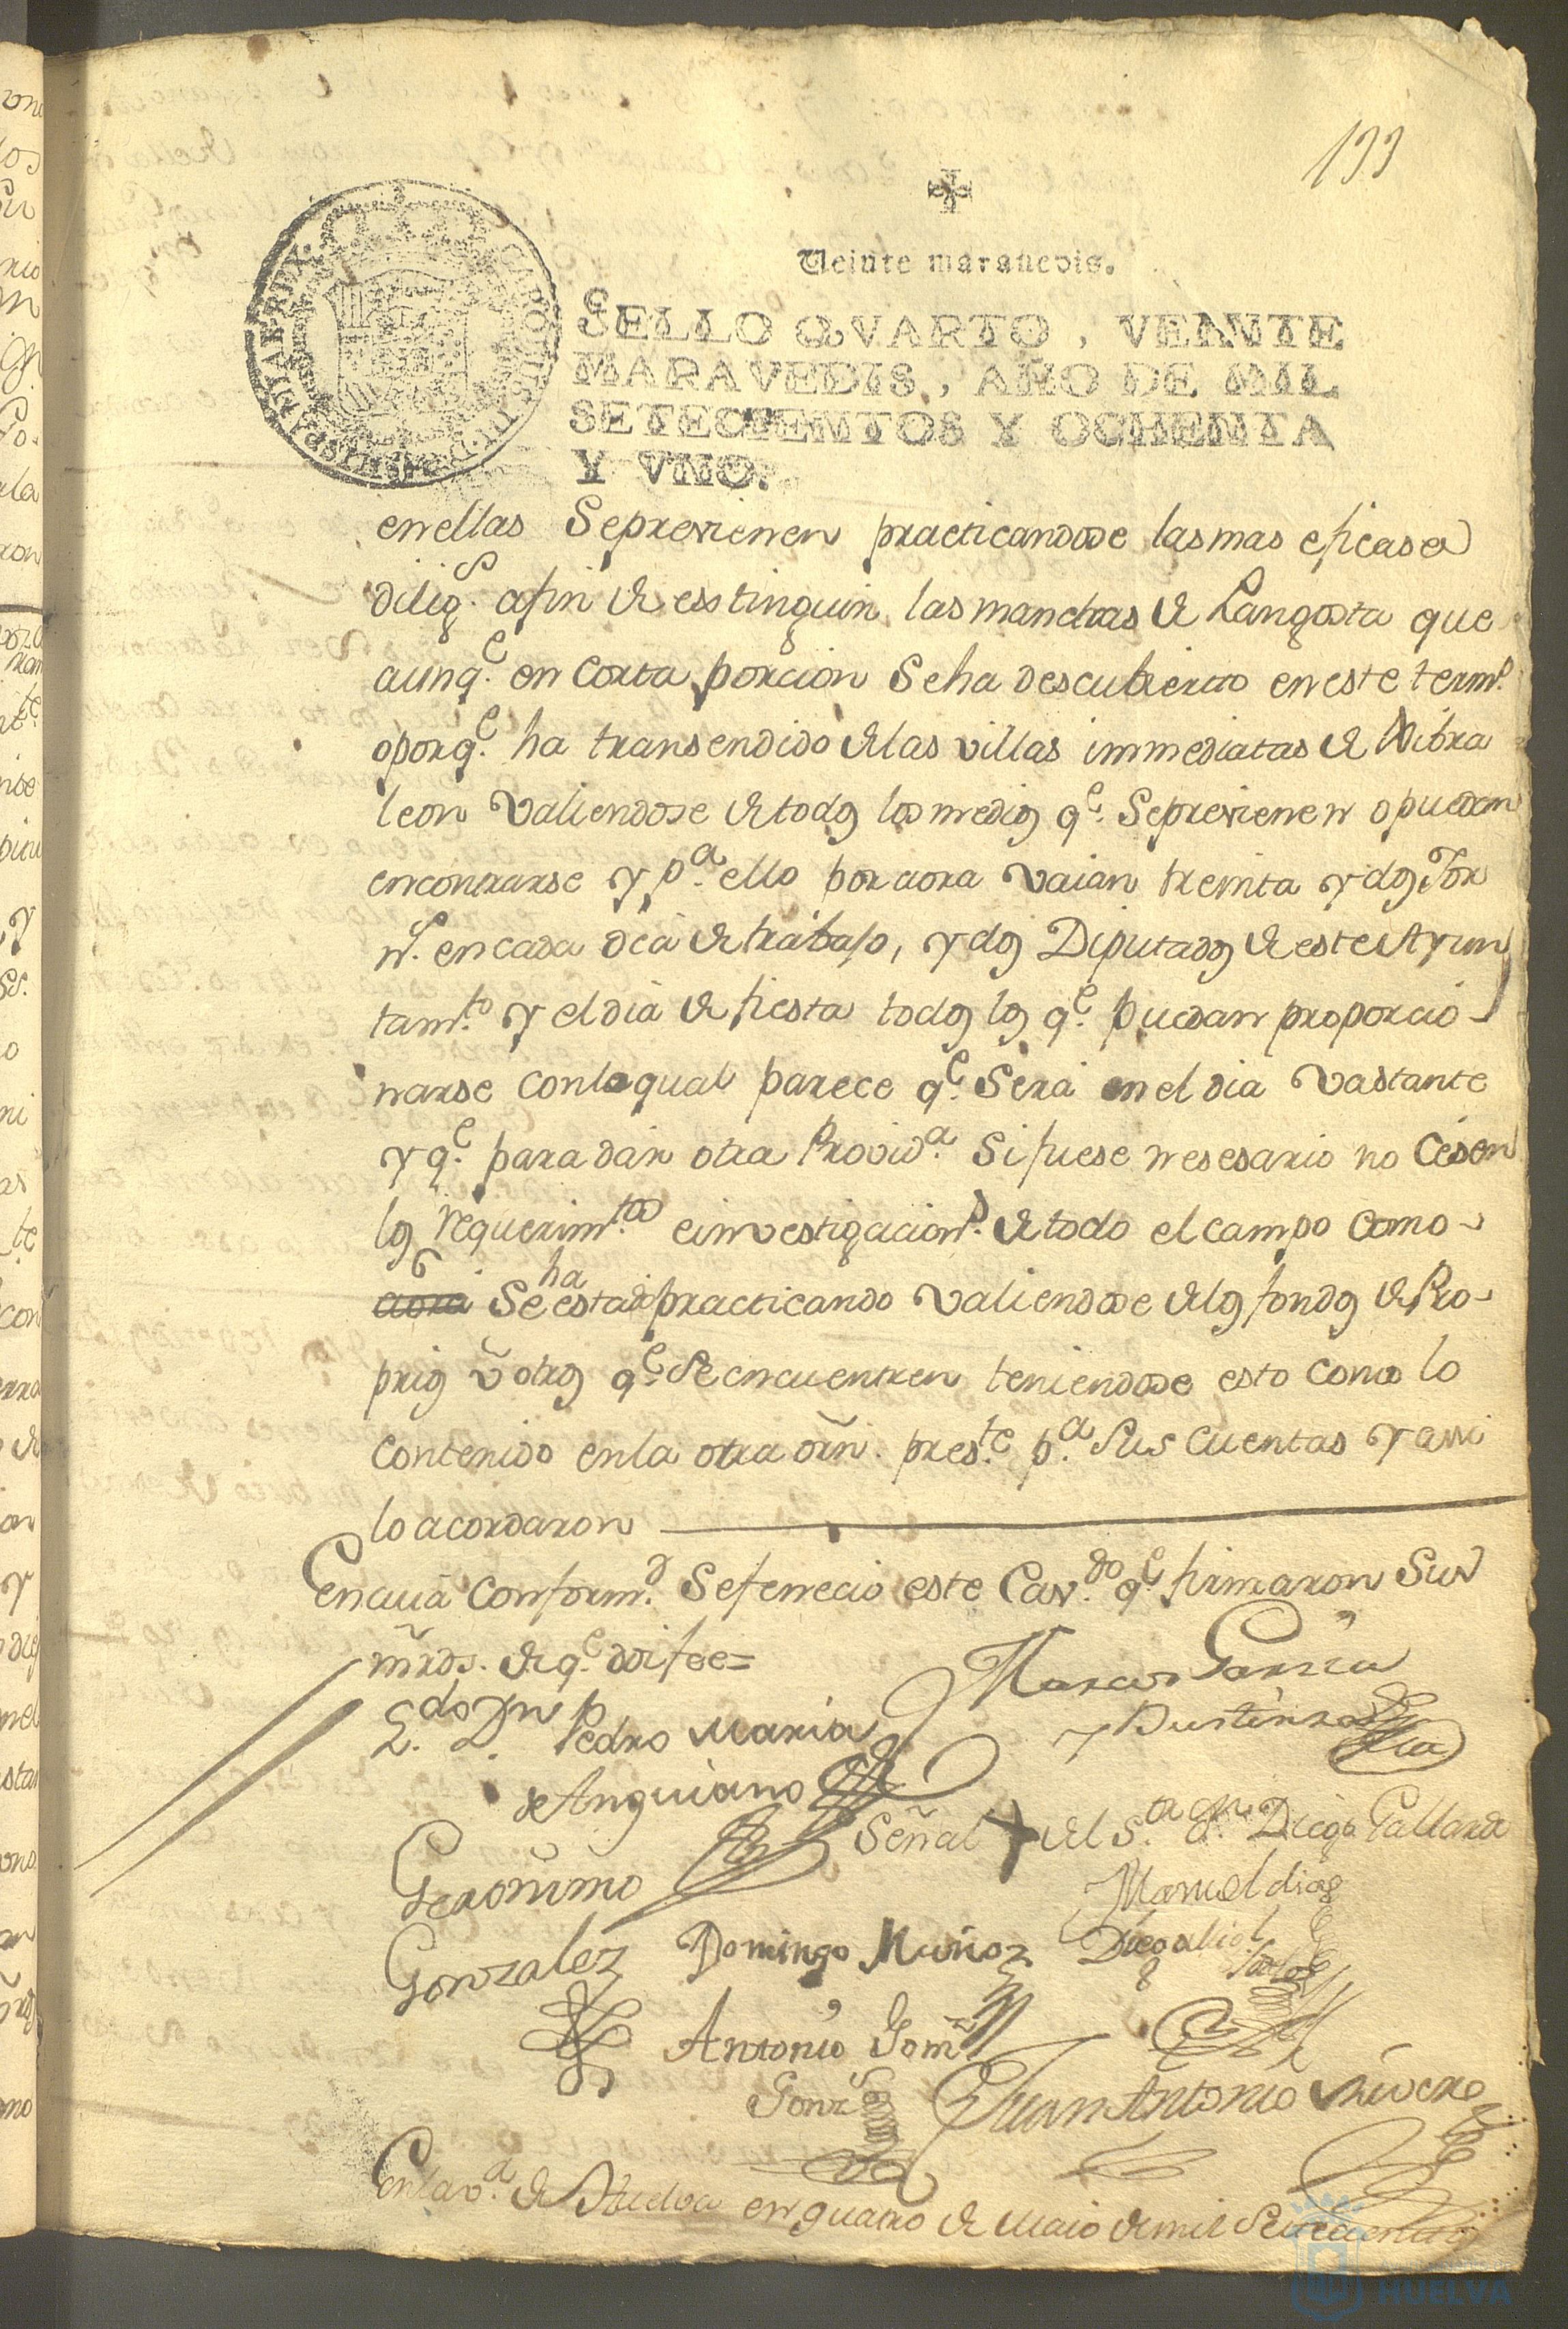 199
Veinte maravedis.
SELLO QVARTO, VEINTE
MARAVEDIS, AÑO DE MIL
SETECIENTOS Y OCHENTA
Y VNO.
en ellas Seprevienen practicandose las mas eficases
dilig.s afin de esstinguir las manchas de Langosta que
aunq.e en corta porcion Seha descubierto en este term.o
oporq.e ha transendido de las villas immediatas de Gibra
leon valiendose de todos los medios q.e Seprevienen o puedan
encontrarse y p.a ello por aora vaian treinta y dos Jor
n.s en cada dia de trabajo, y dos Diputados de este Ayun
tam.to y el dia de fiesta todos los q.e puedan proporcio-
narse con lo qual parece q.e Será en el dia vastante
y q.e para dár otra Provid.a Si fuese nesesario no Cesen
los requerim.tos e investigacion.s de todo el campo como-
aora Se ha estado practicando valiendose de los fondos de Pro-
prios ũ otros q.e Se encuentren teniendose esto como lo
contenido en la otra orñ. pres.te p.a Sus cuentas y assi
lo acordaron
En cuia conform.d Sefenecio este Cav.do q.e firmaron Sus
mrds. de q.e doi fee=
L.do D.n Pedro Maria
de Anguiano
Marcos Garcia
y Bustinza
Señal + del S.r D.n Diego Gallardo
Geronimo
Gonzalez
Manuel dias
Domingo Muñoz
Antonio Gom.z
Gonz.s
Juan Antonio Rivero
En la v.a de Huelva en quatro de Maio de mil Setecientos
HUELVA